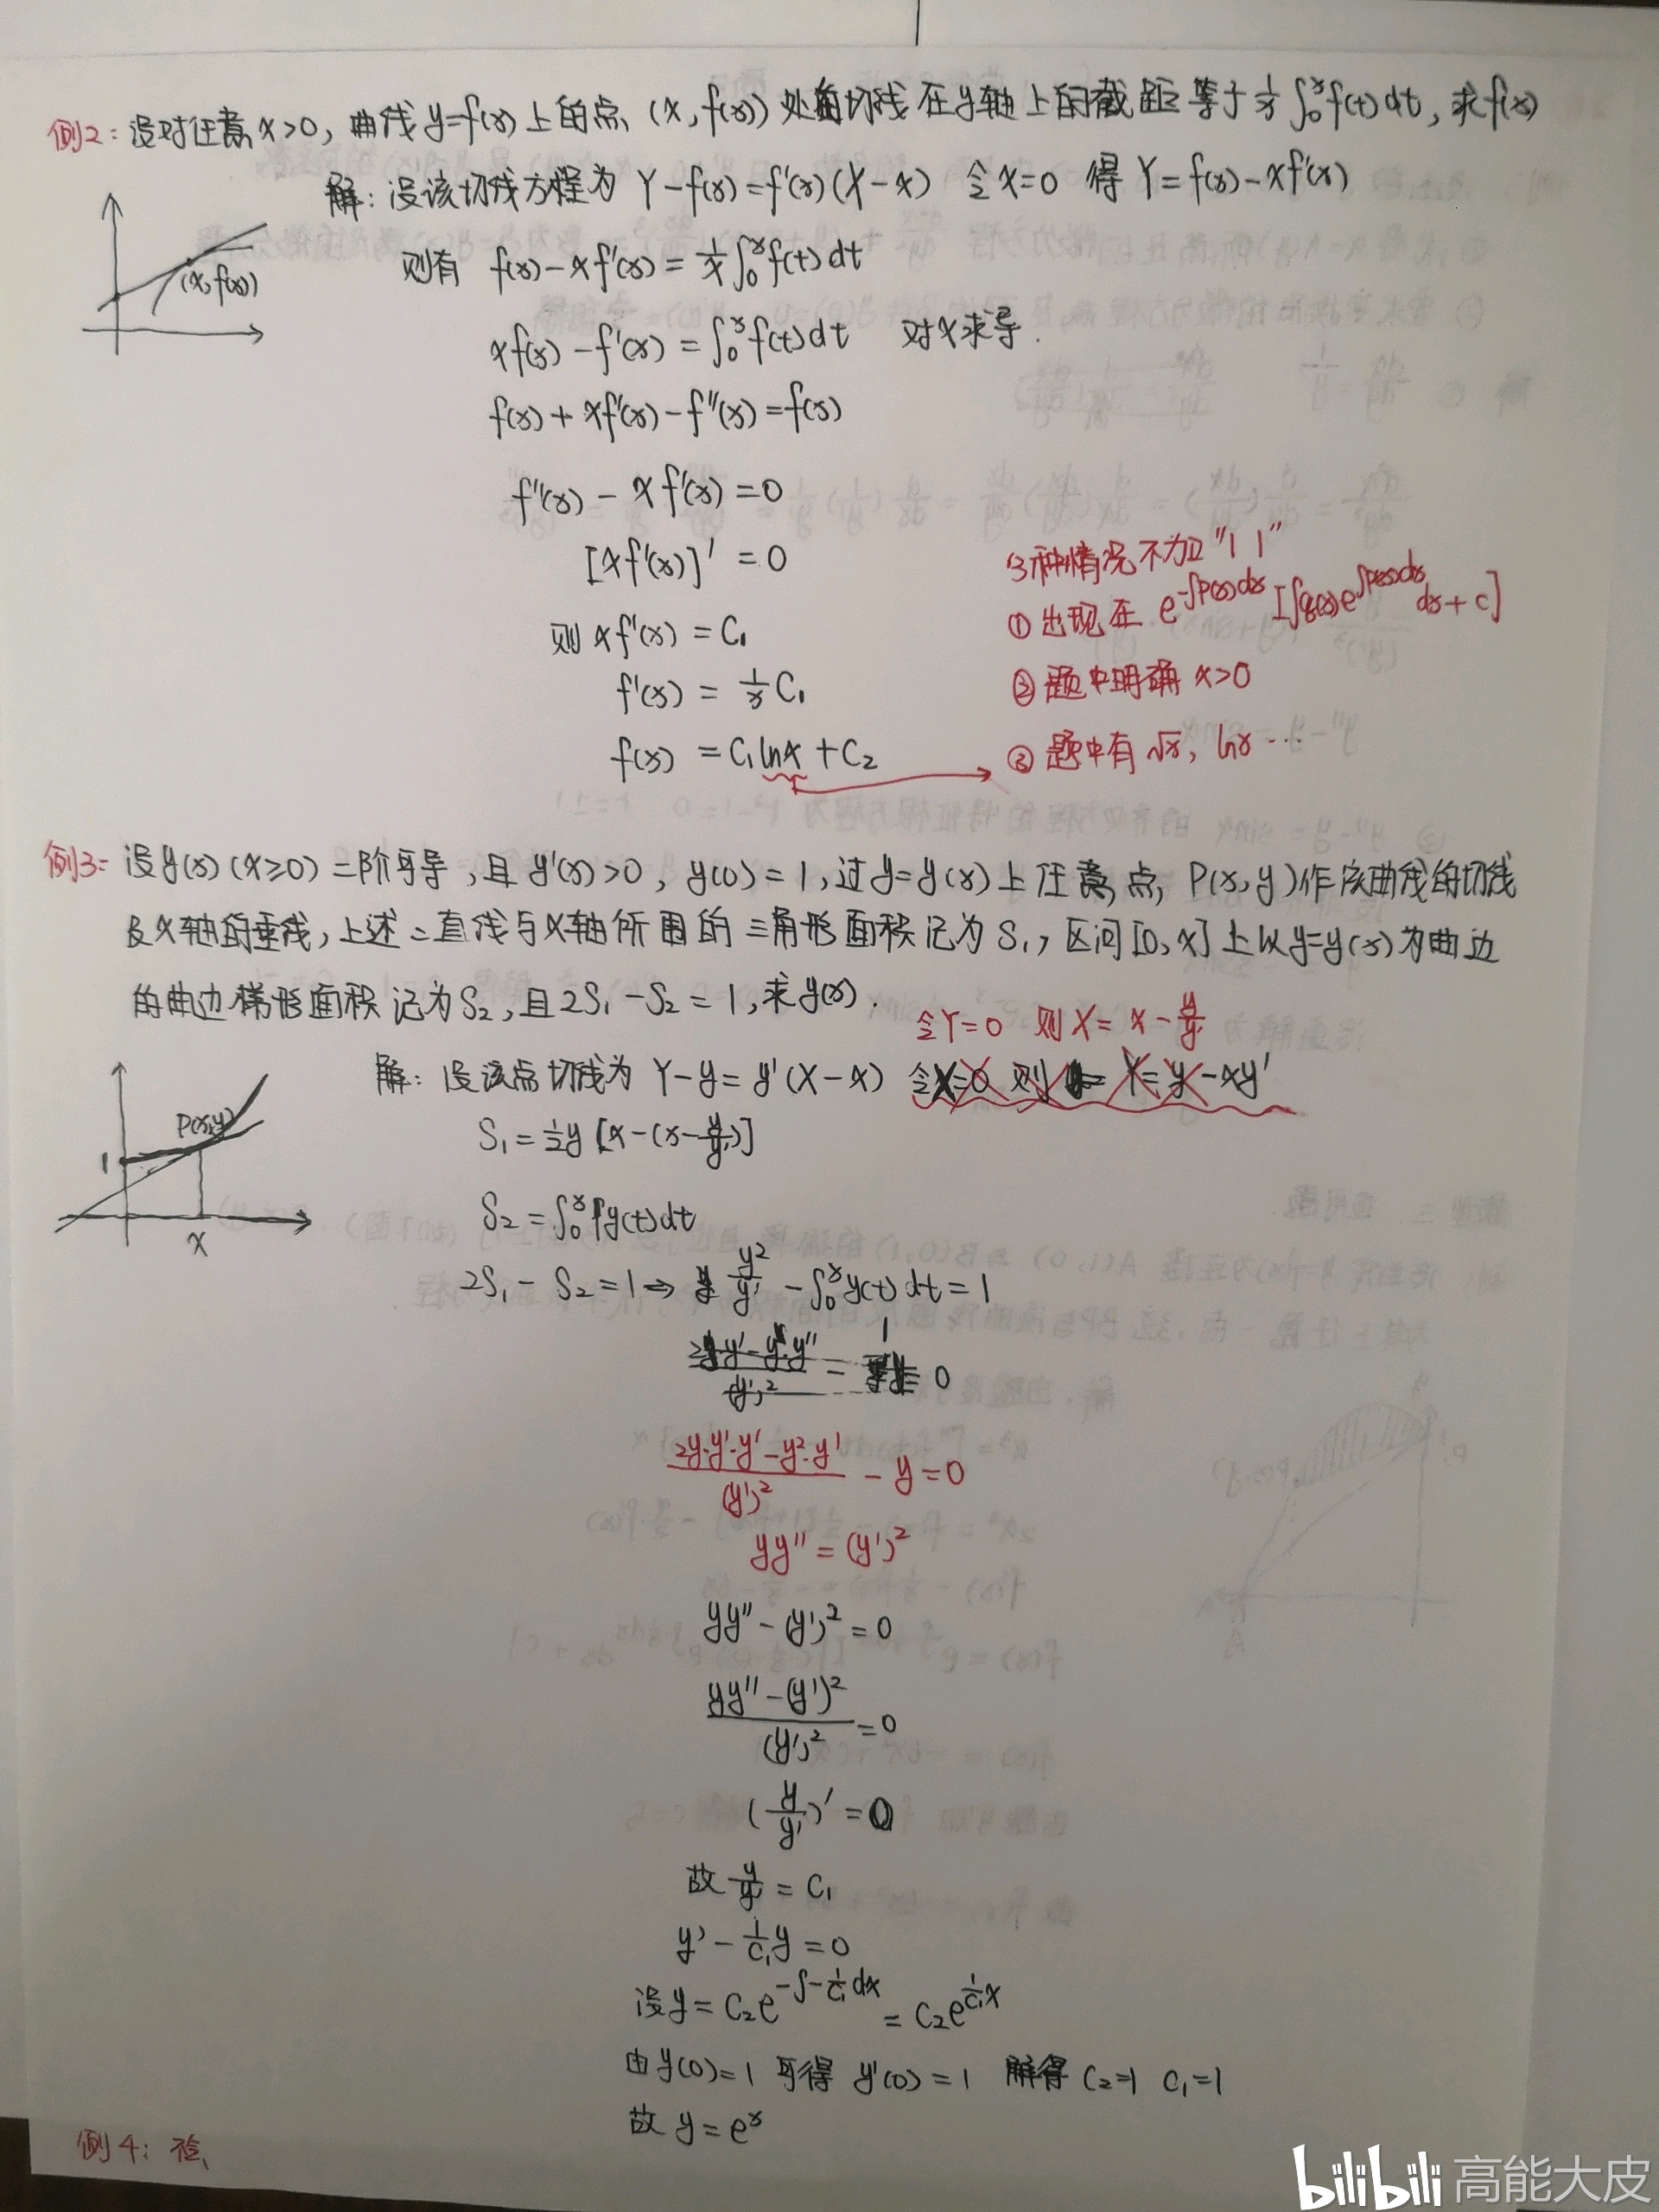 例2：设对任意x>0，曲线y=f(x)上的点(x,f(x))处的切线在y轴上的截距等于1/x ∫₀ˣf(t)dt，求f(x)
解：设该切线方程为 Y-f(x)=f'(x)(X-x) 令X=0 得 Y=f(x)-xf'(x)
(x,f(x))
则有 f(x)-xf'(x)=1/x ∫₀ˣf(t)dt
xf(x)-f'(x)=∫₀ˣf(t)dt 对x求导.
f(x)+xf'(x)-f''(x)=f(x)
f''(x)-xf'(x)=0
[xf'(x)]'=0
则xf'(x)=C₁
f'(x)=1/x C₁
f(x)=C₁lnx+C₂
3种情况不加"| |"
①出现在 e^(-∫p(x)dx)[∫q(x)e^(∫p(x)dx)dx+c]
②题中明确 x>0
③题中有√x, lnx…
例3：设y(x)(x≥0)二阶可导，且y'(x)>0，y(0)=1，过y=y(x)上任意点P(x,y)作该曲线的切线
及x轴的垂线，上述二直线与x轴所围的三角形面积记为S₁，区间[0,x]上以y=y(x)为曲边
的曲边梯形面积记为S₂，且2S₁-S₂=1，求y(x).
令Y=0 则X=x-y/y'
解：设该点切线为 Y-y=y'(X-x) 令X=0 则 Y=y-xy'
P(x,y)
1
x
S₁=1/2 y[x-(x-y/y')]
S₂=∫₀ˣy(t)dt
2S₁-S₂=1⇒ y²/y' -∫₀ˣy(t)dt=1
(2y·y'·y'-y²·y')/(y')² -y=0
yy''=(y')²
yy''-(y')²=0
(yy''-(y')²)/(y')²=0
(y/y')'=0
故 y/y'=C₁
y'-1/C₁ y=0
设y=C₂e^(-∫-1/C₁ dx)=C₂e^(1/C₁ x)
由y(0)=1 可得 y'(0)=1 解得 C₂=1 C₁=1
故 y=eˣ
例4：
bilibili 高能大皮